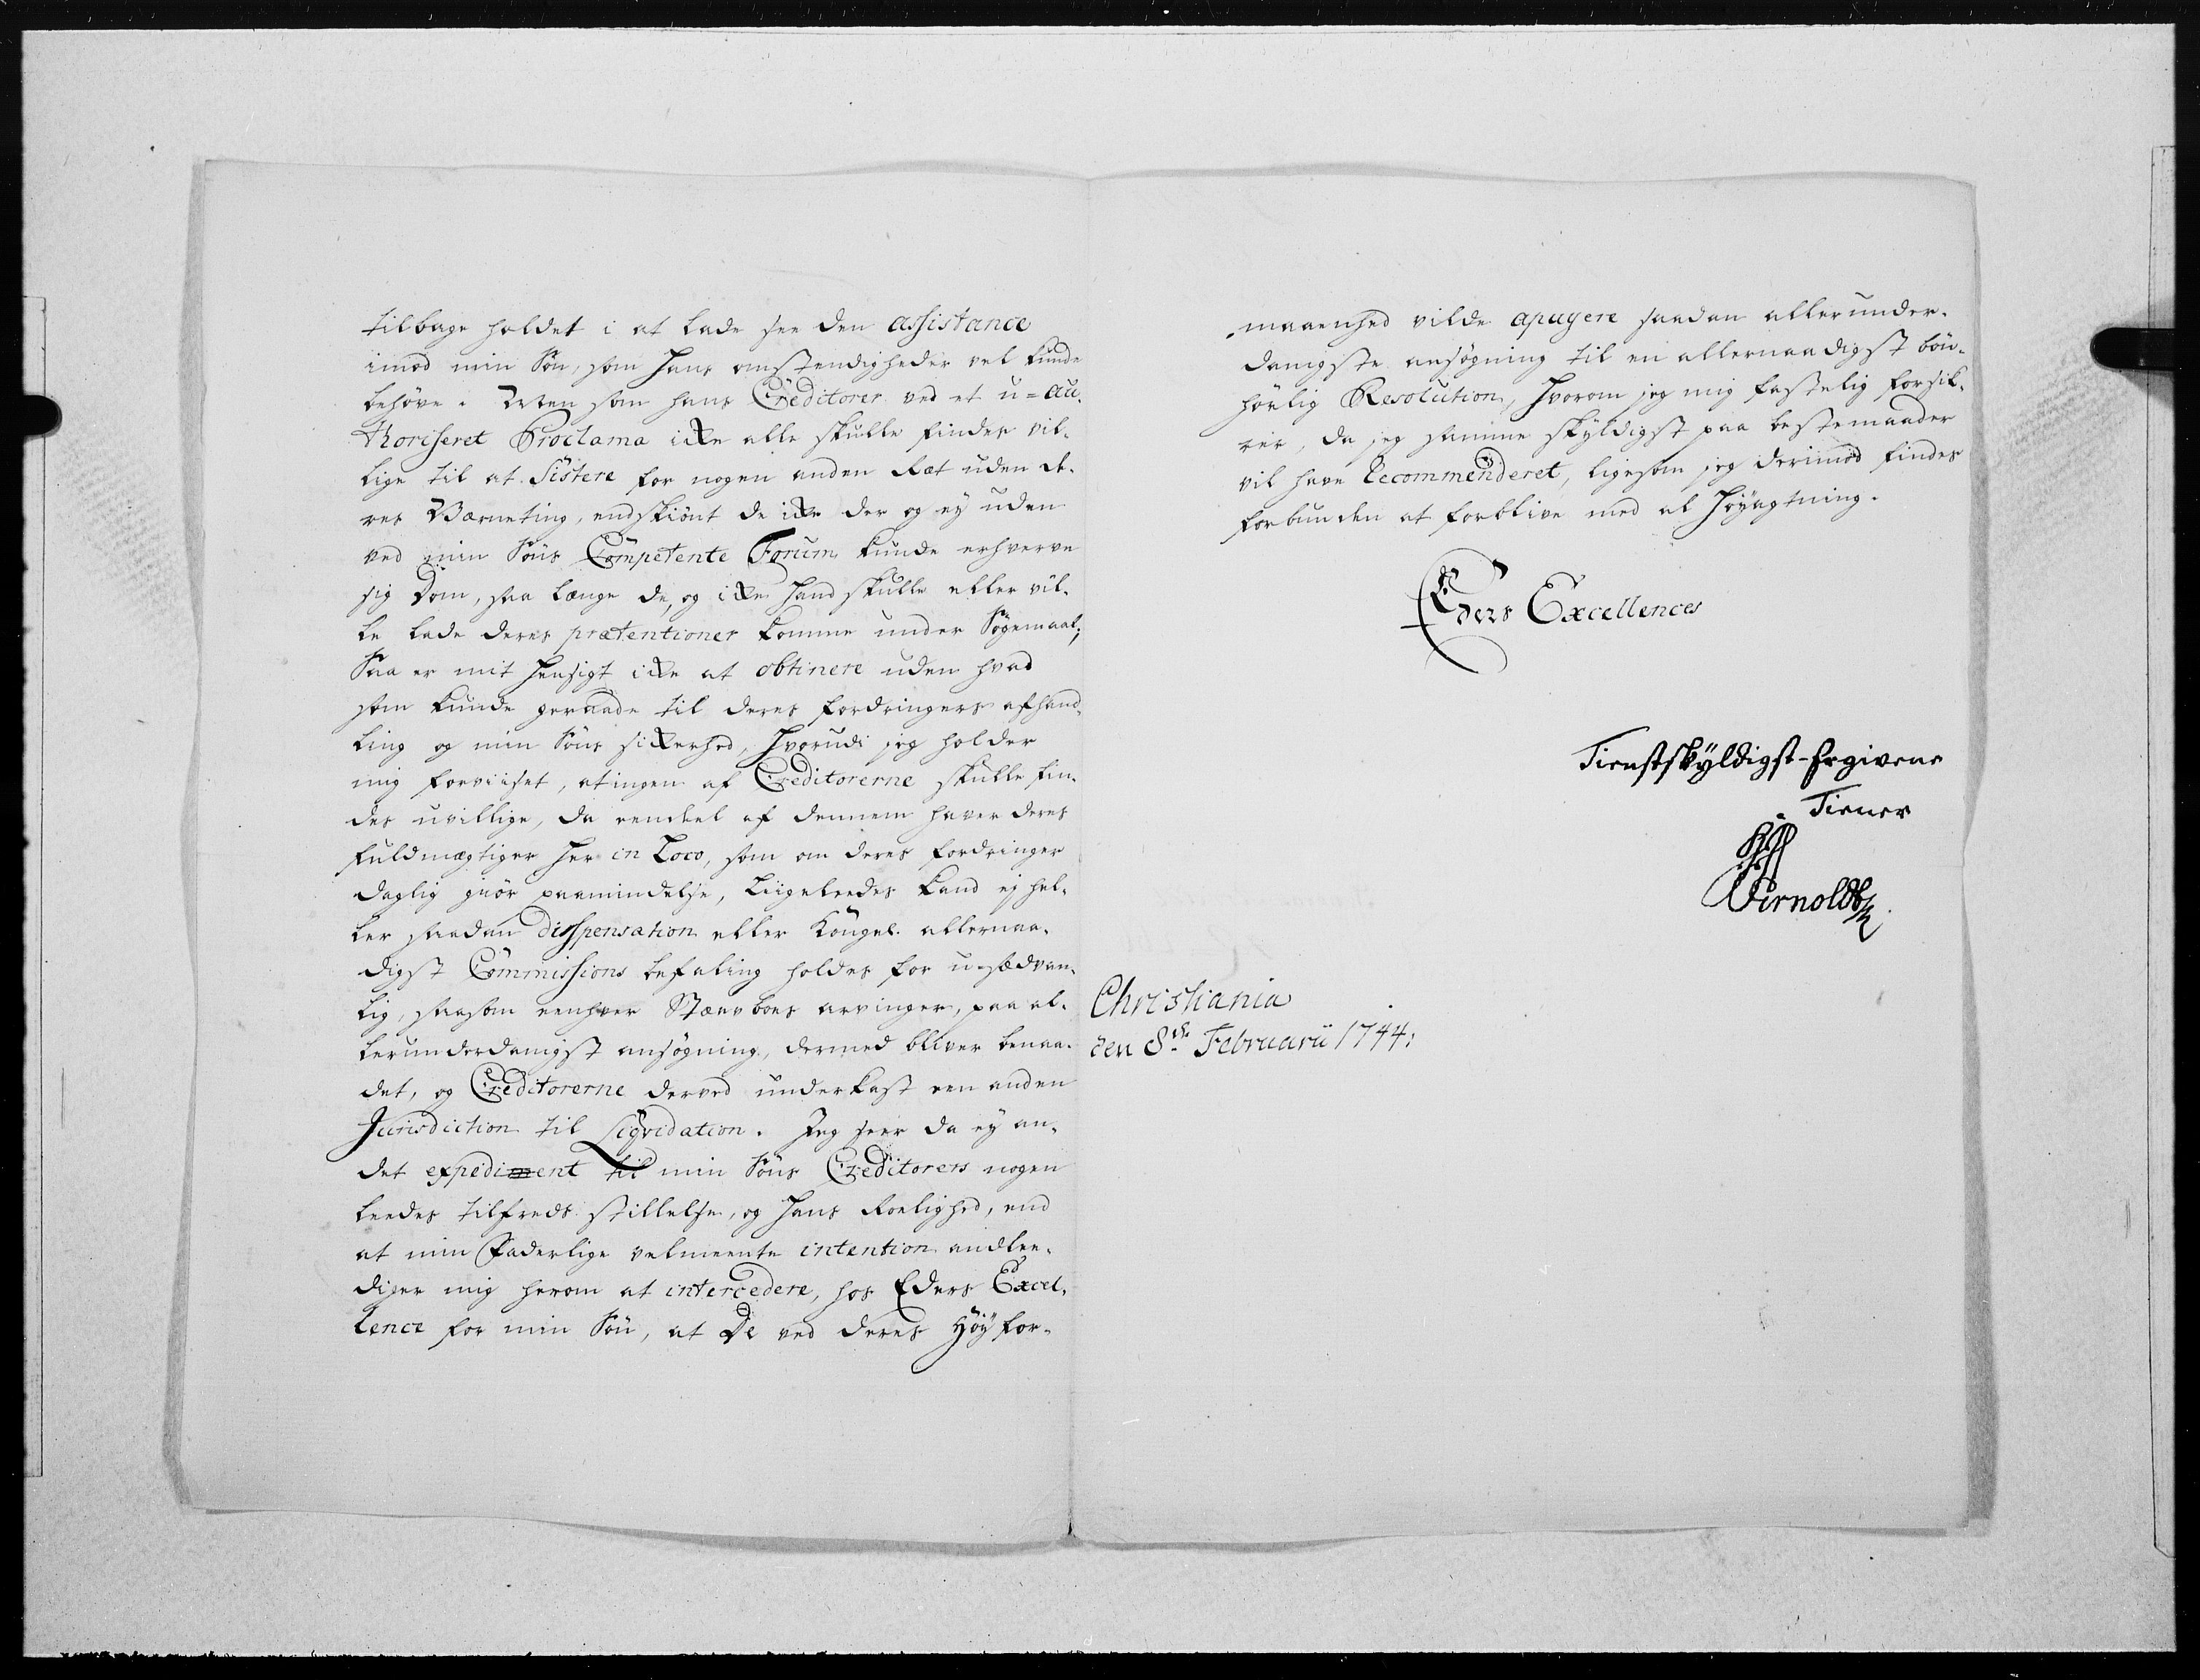 tilbage holdet i at lade see den assistance
imod min Søn, som Hans omstendigheder vel kunde
behøve. Men som hans Creditorer ved et u=au-
thoriseret Proclama ikke alle skulle findes vil-
lige til at Sistere for nogen anden Ræt uden de-
res Værneting, endskiønt de ikke der og ey uden
ved min Søns Competente Forum kunde erhverve
sig Dom, saa længe de, og ikke Hand skulle eller vil-
le lade deres prætentioner komme under Søgemaal;
Saa er mit Hensigt ikke at obtinere uden hvad
som kunde geraade til deres fordringers afhand-
ling og min Søns sikkerhed, Hvorudi jeg holder
mig forviiset, at ingen af Creditorerne skulle fin-
des uvillige, da eendeel af dennem haver deres
fuldmægtiger Her in Loco, som om deres fordringer
daglig giør paamindelse, Liigeleedes kand ej hel-
ler saadan dispensation eller Kongel. allernaa-
digst Commissions befaling holdes for u-sædvan-
lig, saasom eenhver Stærvboes arvinger, paa al-
lerunderdanigst ansøgning, dermed bliver benaa-
det, og Creditorerne derved underkast een anden
Jurisdiction til Liqvidation. Jeg seer da ey an-
det expedient til min Søns Creditorers nogen
leedes tilfreds stillelse, og Hans Roelighed, end
at min Faderlige velmeente intention andlee-
diger mig herom at intercedere, hos Eders Excel-
lence for min Søn, at De ved deres Høyfor-
maaenhed vilde apuyere saadan allerunder-
danigste ansøgning til en allernaadigst bøn-
hørlig Resolution, Hvorom jeg mig fastelig forsik-
rer, da jeg samme skyldigst paa bestemaader
vil have Recommenderet, ligesom jeg derimod findes
forbunden at forblive med al Høyagtning.
Eders Excellences
Tienstskyldigst-Ergivene
Tiener
HJ Arnoldt
Christiania
den 8de Februarii 1744: